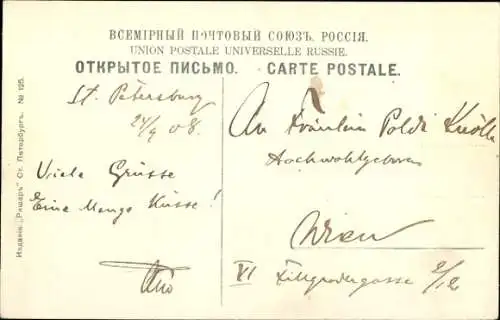 ВСЕМІРНЫЙ ПОЧТОВЫЙ СОЮЗЪ. РОССІЯ.
UNION POSTALE UNIVERSELLE RUSSIE.
ОТКРЫТОЕ ПИСЬМО. — CARTE POSTALE.
St. Petersburg
24/9 08.
Viele Grüsse
Eine Menge Küsse!
An Fräulein Poldi
Hochwohlgeboren
Wien
VI Fillgradergasse 2/12
Изданіе „Ришаръ" Ст. Петербургъ. № 195.